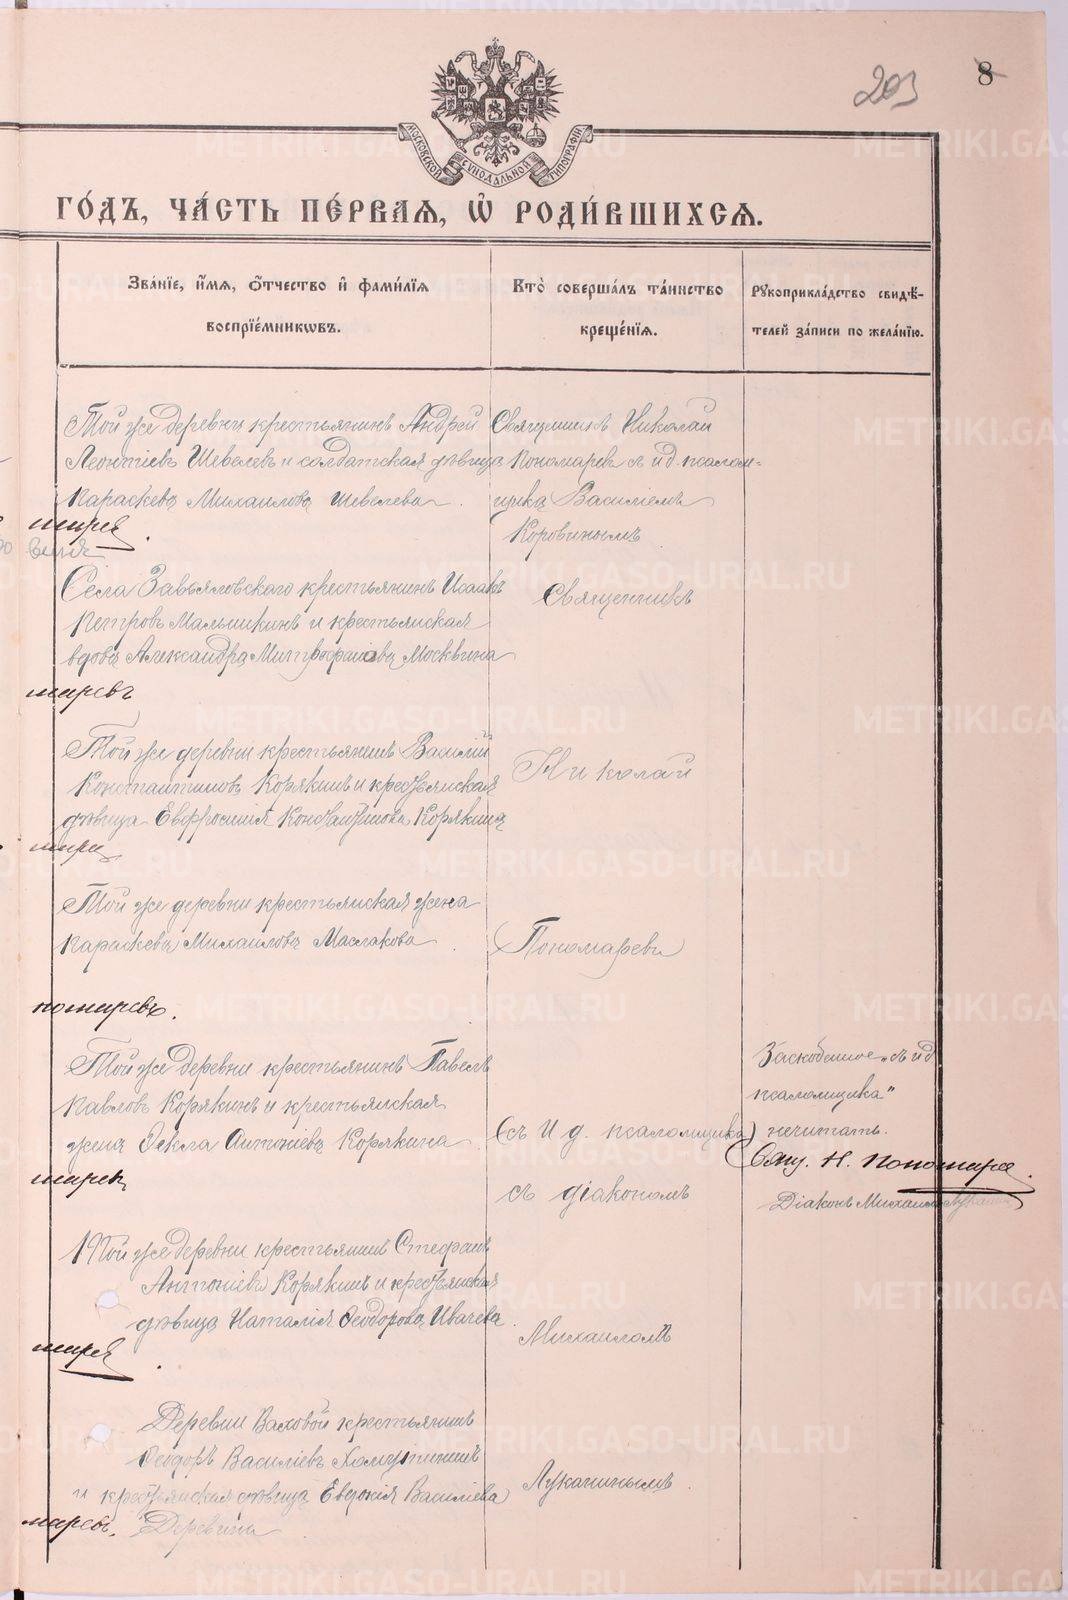 203 8
МОСКОВСКОЙ СѴНОДАЛЬНОЙ ТИПОГРАФІИ
ГО́ДЪ, ЧА́СТЬ ПЕ́РВАЯ, Ѡ҆ РОДИ́ВШИХСЯ.
Зва́нїе, и҆́мя, ѻ҆́тчество и҆ фами́лїя
воспрїе́мникѡвъ.
Кто̀ соверша́лъ та́инство
креще́нїя.
Рꙋкоприкла́дство свидѣ́-
телей за́писи по жела́нїю.
Той же деревни крестьянинъ Андрей
Леонтіевъ Шевелевъ и солдатская дѣвица
Параскева Михаилова Шевелева.
Священникъ Николай
Пономаревъ съ и д. псалом=
щика Василіемъ
Коровинымъ
Села Завьяловскаго крестьянинъ Исаакъ
Петровъ Малышкинъ и крестьянская
вдова Александра Митрофанова Москвина
Священникъ
Той же деревни крестьянинъ Василій
Константиновъ Корякинъ и крестьянская
дѣвица Евфросинія Константинова Корякина
Николай
Той же деревни крестьянская жена
Параскева Михаилова Маслакова
Пономаревъ
Той же деревни крестьянинъ Павелъ
Павловъ Корякинъ и крестьянская
жена Ѳекла Антоніева Корякина
(съ И д. псаломщика)
съ діакономъ
Заскобенное „съ и д
псаломщика"
нечитать.
Свящ. Н. Пономарев.
Діаконъ Михаилъ Луканинъ
Той же деревни крестьянинъ Стефанъ
Антоніевъ Корякинъ и крестьянская
дѣвица Наталія Ѳеодорова Ивачева.
Михаиломъ
Деревни Ваховой крестьянинъ
Ѳеодоръ Василіевъ Хомутининъ
и крестьянская дѣвица Евдокія Василіева
Деревина
Луканинымъ.